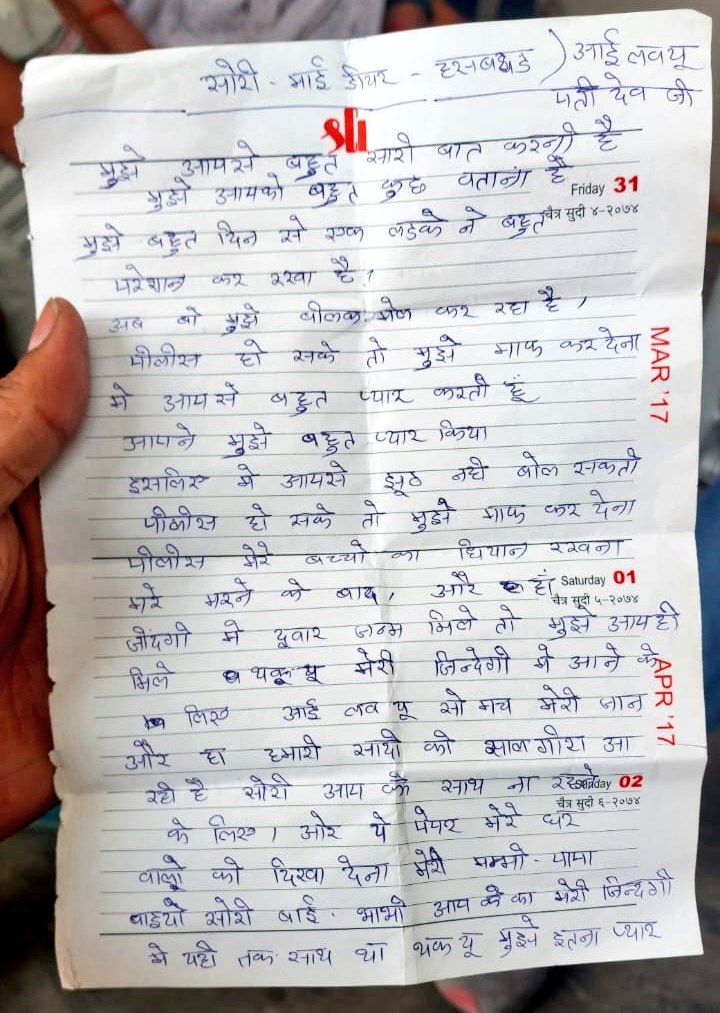 सोरी - माई डीयर - हसबण्ड ) आई लव यू
पती देव जी
sli
मुझे आपसे बहुत सारी बात करनी है
मुझे आपको बहुत कुछ बताना है
Friday 31
चैत्र सुदी ४-२०७४
मुझे बहुत दिन से एक लडके ने बहुत
परेशान कर रखा है।
अब वो मुझे बीलक मेल कर रहा है,
MAR '17
पीलीस हो सके तो मुझे माफ कर देना
मे आपसे बहुत प्यार करती हूं
आपने मुझे बहुत प्यार किया
इसलिए मे आपसे झूठ नही बोल सकती
पीलीस हो सके तो मुझे माफ कर देना
पीलीस मेरे बच्चो का धियान रखना
Saturday 01
चैत्र सुदी ५-२०७४
मरे मरने के बाद, और हाँ
जीदगी मे दूवार जन्म मिले तो मुझे आप ही
मिले थकयू मेरी जिन्देगी मे आने के
APR '17
लिए आई लव यू सो मच मेरी जान
और हा हमारी सादी की सालगीरा आ
रही है सोरी आप के साथ ना रहने
Sunday 02
चैत्र सुदी ६-२०७४
के लिए। और ये पेपर मेरे घर
वालो को दिखा देना मेरी मम्मी - पापा
बाइयो सोरी बाई - भाभी आप का मेरी जिन्दगी
मे यही तक साथ था थक यू मुझे इतना प्यार